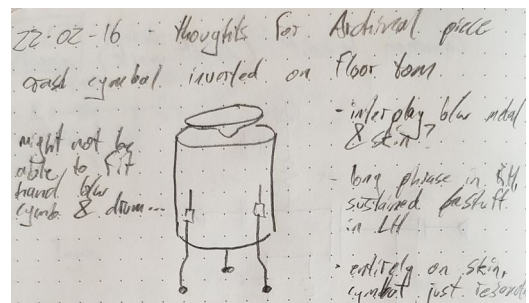 22-02-16 - Thoughts for Archiveal piece
crash cymbal inverted on Floor tom
might not be
able to fit
hand b/w
cymb. & drum...
- interplay b/w metal
& skin?
- long phrase in RH,
sustained
in LH
- entirely on skin,
cymbal just